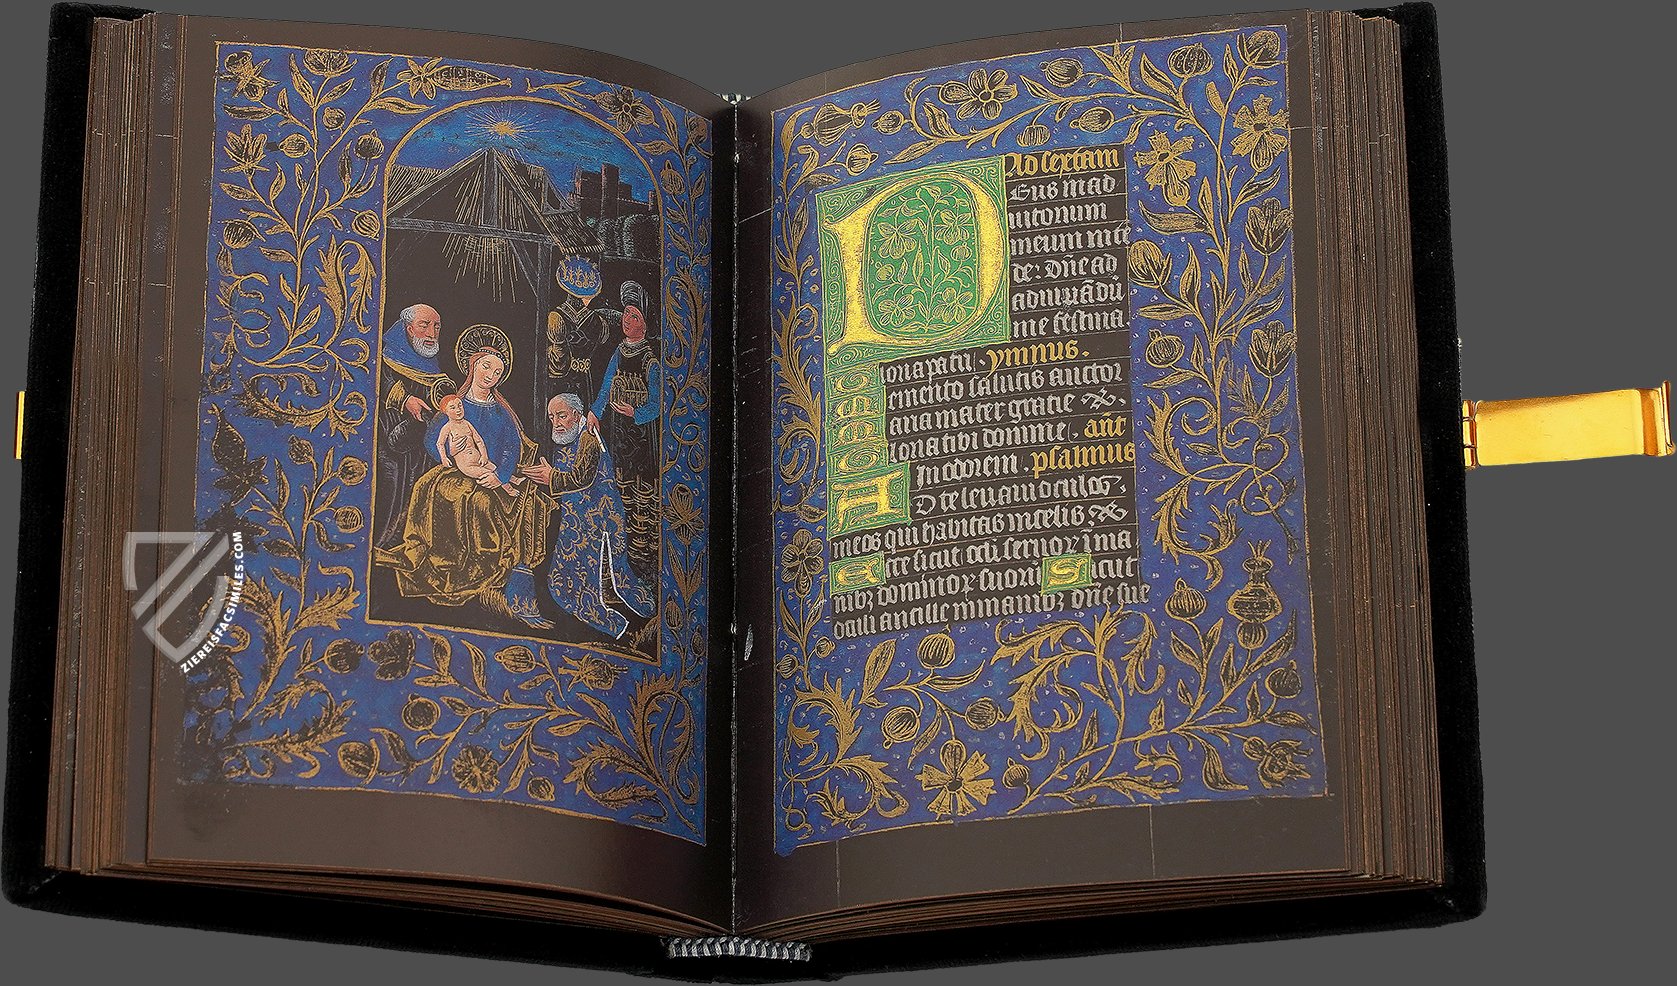 ZIEREISFACSIMILES.COM
Ad sextam
Deus in ad
iutorium
meum inte
de: Dn̄e ad
adiuuādū
me festina.
Gloria patri. ymnus.
Memento salutis auctor
Maria mater gratie
Gloria tibi domine. ant̄
In odorem. psalmus
AD te leuaui oculos
meos qui habitas in celis
Ecce sicut oculi seruorꝝ in ma
nibꝫ dominorꝝ suorū Sicut
oculi ancille in manibꝫ dn̄e sue